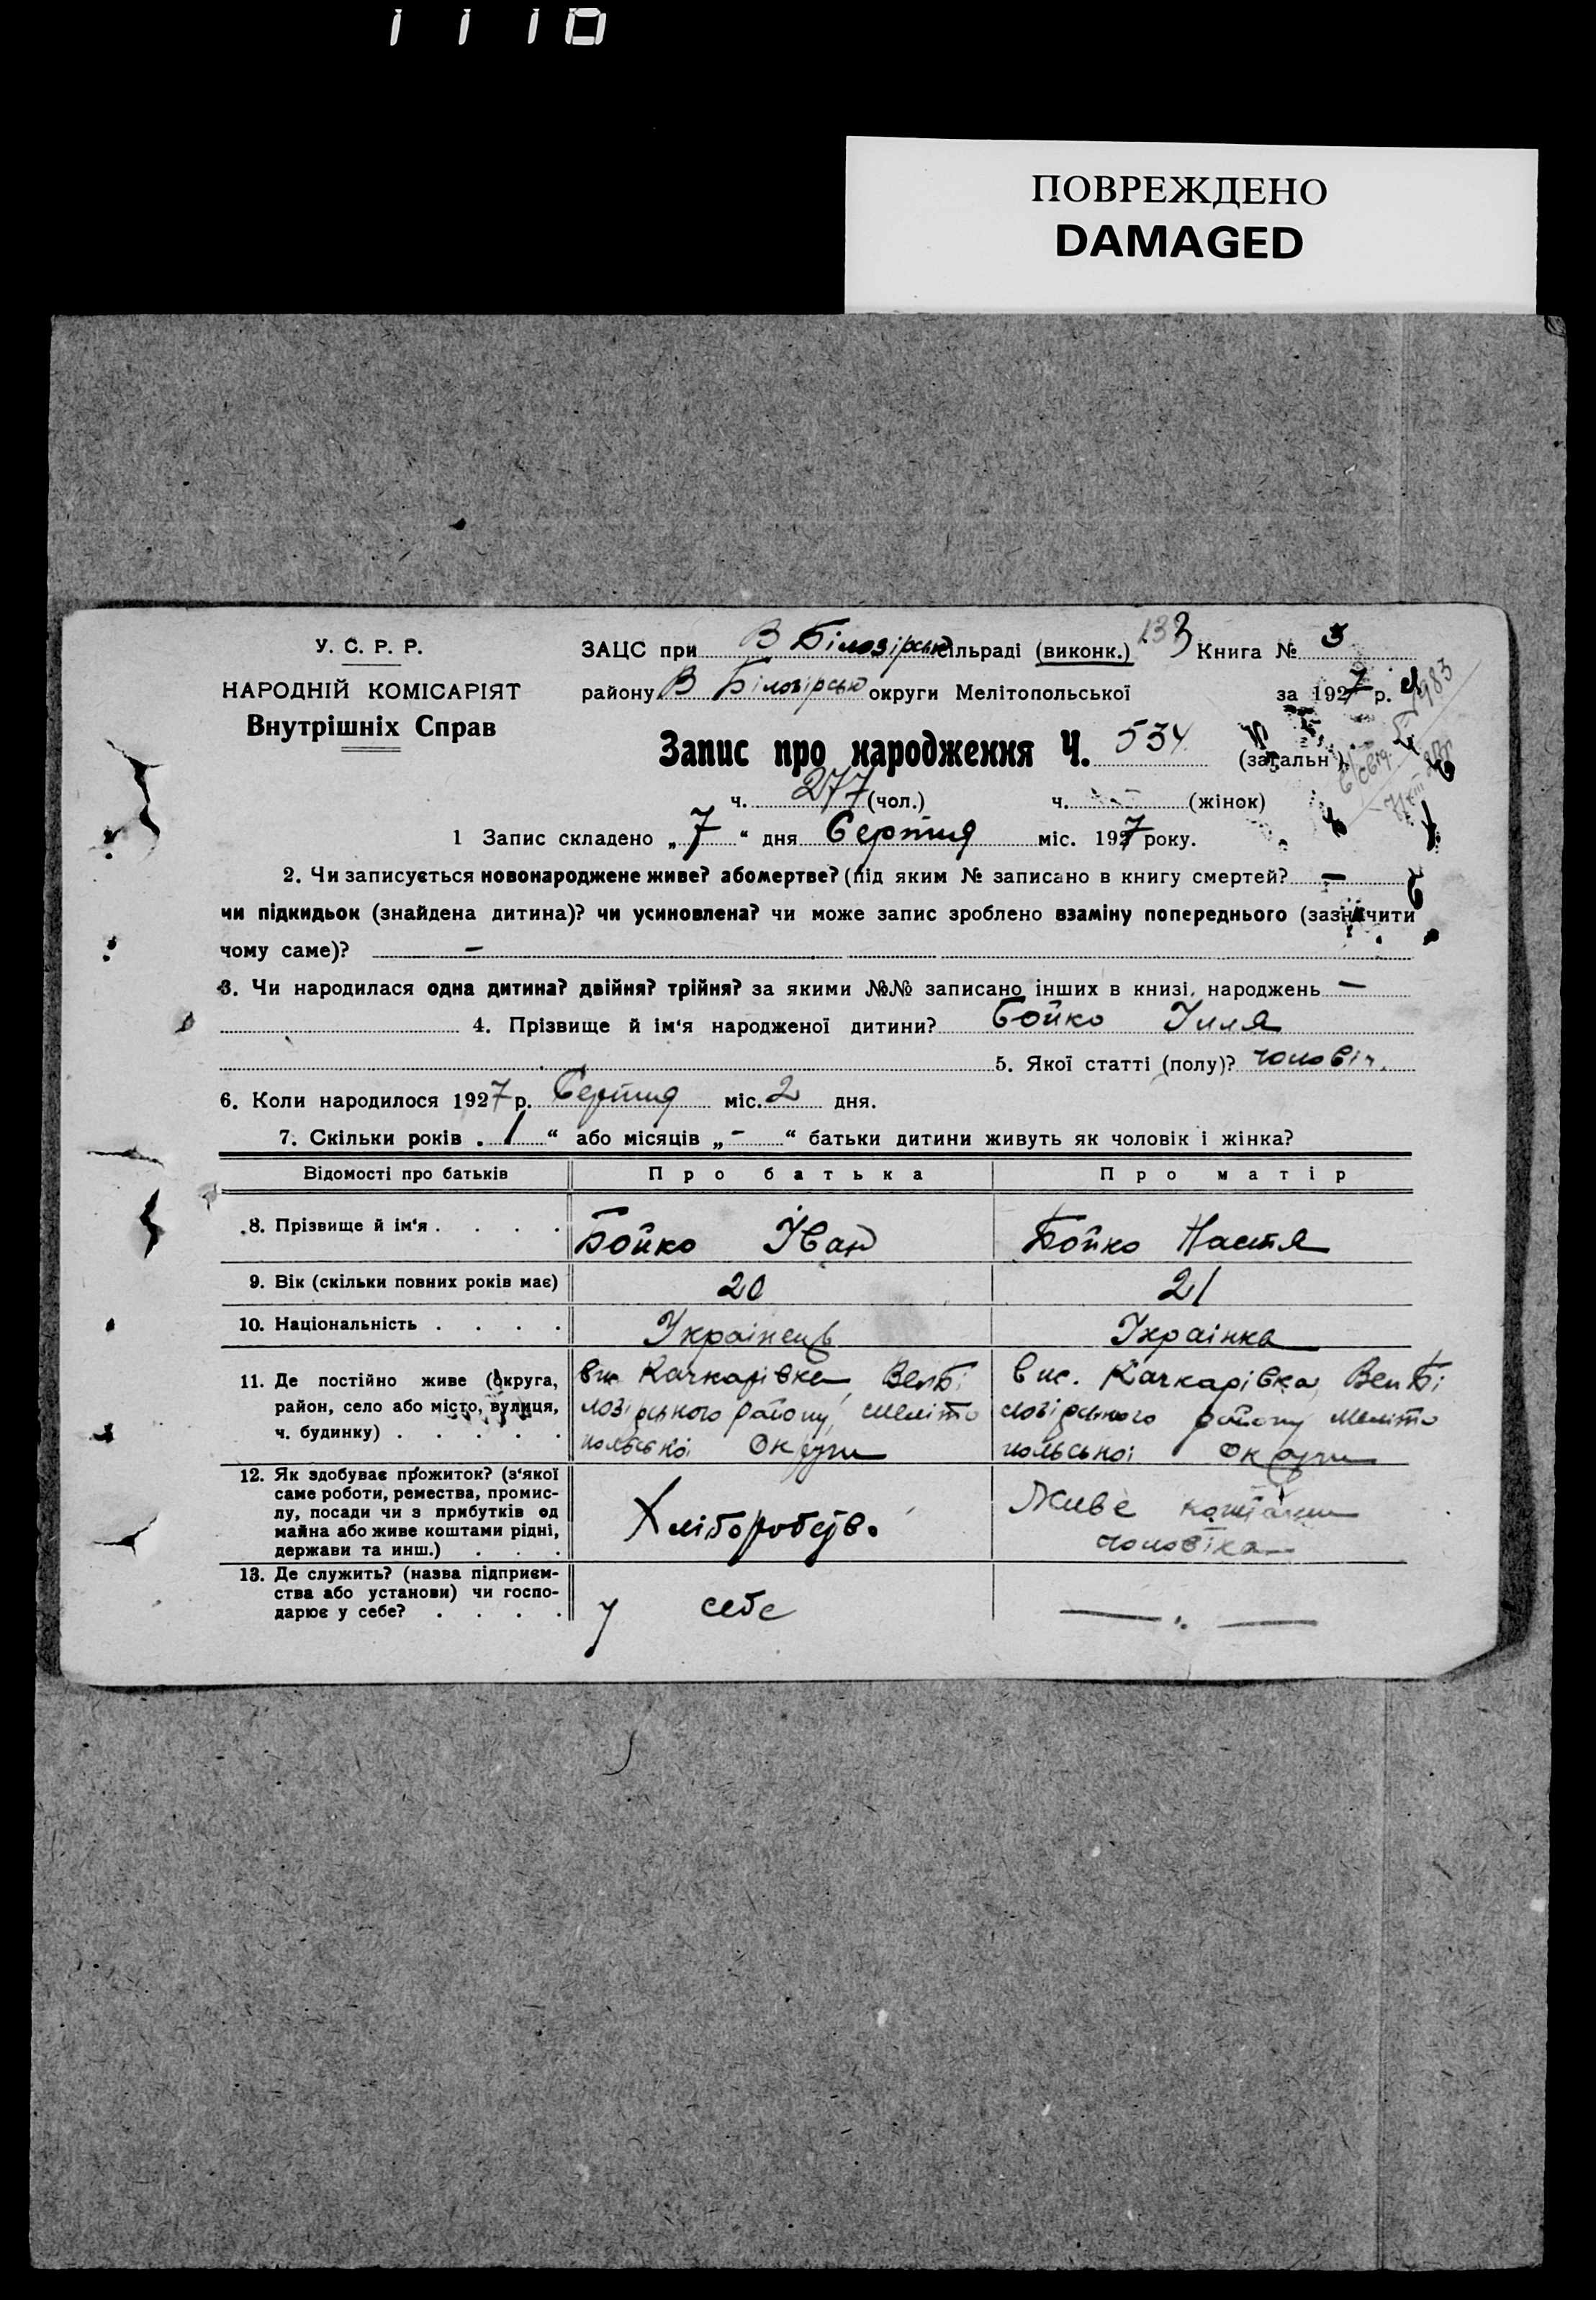 1110
ПОВРЕЖДЕНО
DAMAGED
У. С. Р. Р.
НАРОДНІЙ КОМІСАРІЯТ
Внутрішніх Справ
ЗАЦС при В Білозірськ сільраді (виконк.) 133 Книга № 3
району В Білозірськ округи Мелітопольської за 1927 р.
Запис про народження Ч. 534 (загальн.)
ч. 277 (чол.) ч. (жінок)
1 Запис складено „7“ дня Серпня міс. 1927 року.
2. Чи записується новонароджене живе? або мертве? (під яким № записано в книгу смертей? —
чи підкидьок (знайдена дитина)? чи усиновлена? чи може запис зроблено взаміну попереднього (зазначити
чому саме)? —
3. Чи народилася одна дитина? двійня? трійня? за якими №№ записано інших в книзі, народжень —
4. Прізвище й ім'я народженої дитини? Бойко Ілля
5. Якої статті (полу)? чоловіч.
6. Коли народилося 1927 р. Серпня міс. 2 дня.
7. Скільки років „1“ або місяців „-“ батьки дитини живуть як чоловік і жінка?
Відомості про батьків Про батька Про матір
8. Прізвище й ім'я . . . . Бойко Іван Бойко Настя
9. Вік (скільки повних років має) 20 21
10. Національність . . . . Українець Українка
11. Де постійно живе (округа,
район, село або місто, вулиця,
ч. будинку) . . . . .
вис. Качкарівка, Вел Бі
лозірського району, Меліто
польської Округи
вис. Качкарівка, Вел Бі
лозірського району Меліто
польської Округи
12. Як здобуває прожиток? (з'якої
саме роботи, ремества, промис-
лу, посади чи з прибутків од
майна або живе коштами рідні,
держави та инш.) . . .
Хліборобств.
Живе коштами
чоловіка
13. Де служить? (назва підприєм-
ства або установи) чи госпо-
дарює у себе? . . . .
у себе
— „ —